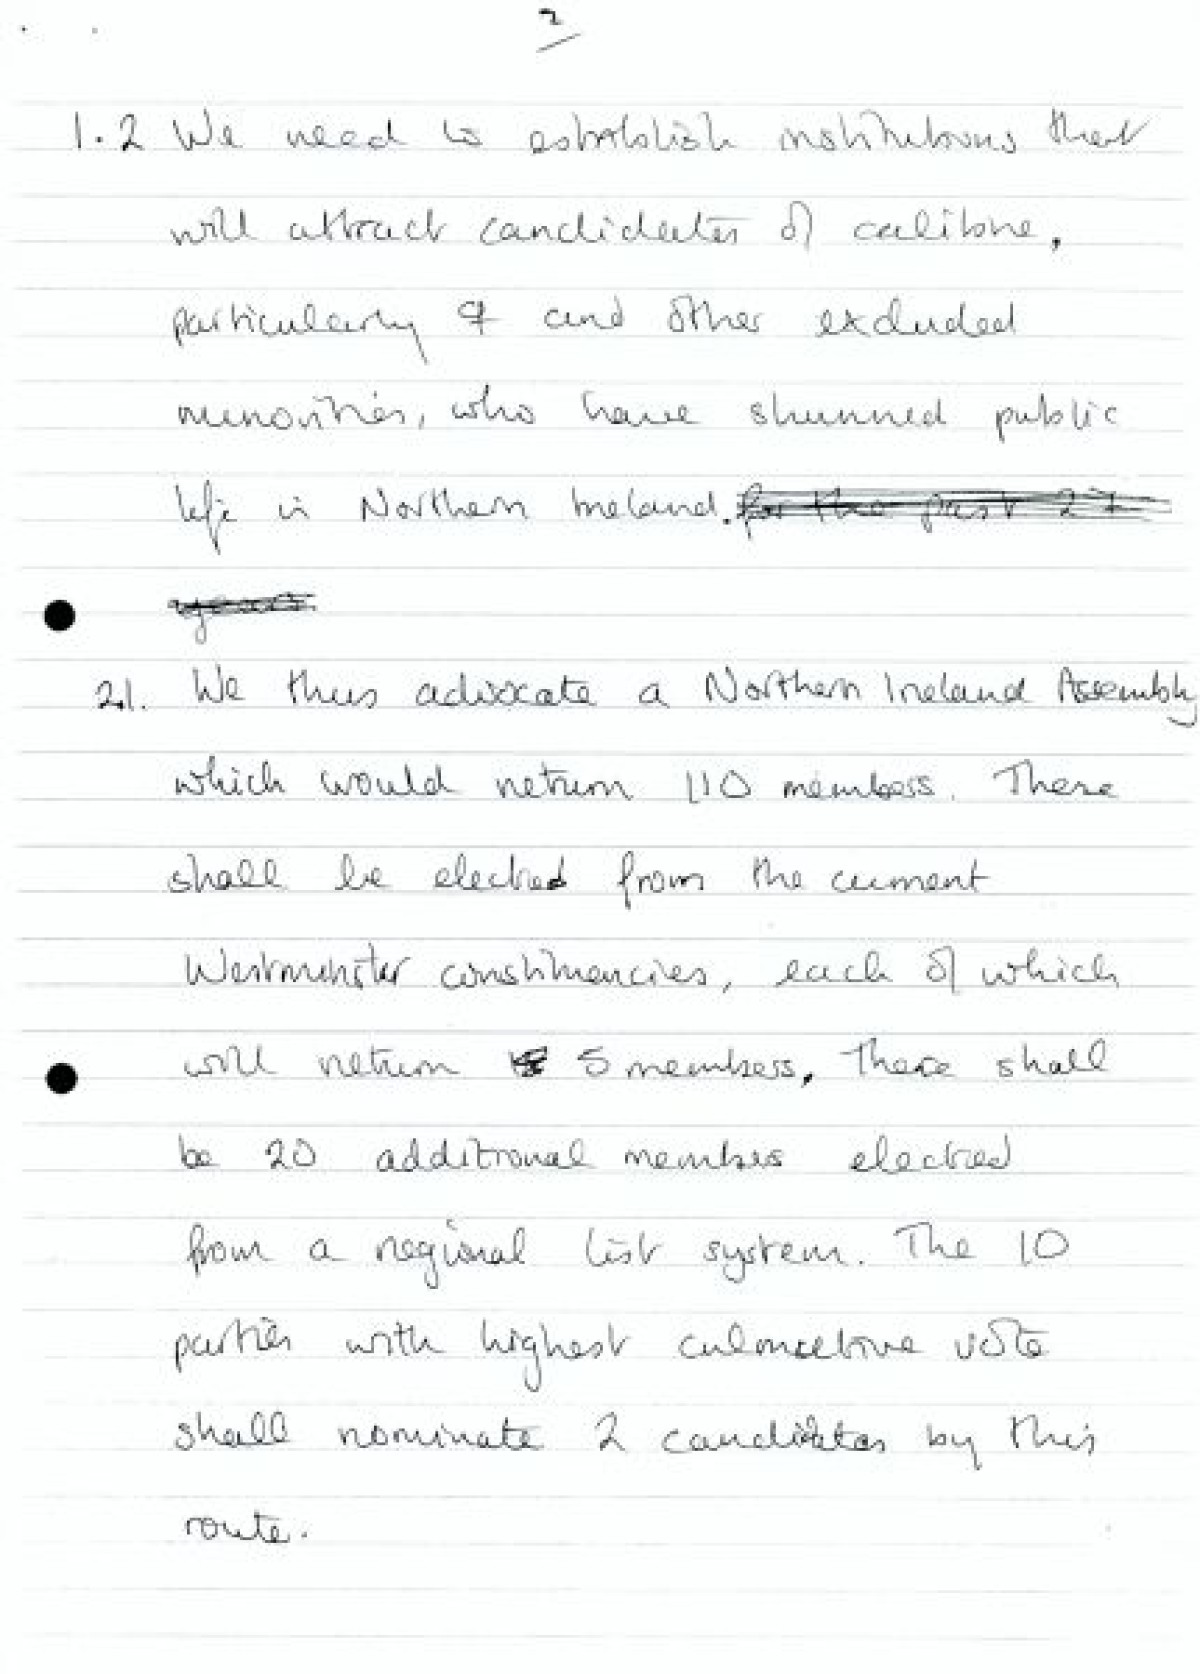 2
1.2 We need to establish institutions that
will attract candidates of calibre,
particularly ♀ and other excluded
minorities, who have shunned public
life in Northern Ireland. for the past 27
years
2.1. We thus advocate a Northern Ireland Assembly
which would return 110 members. These
shall be elected from the current
Westminster constituencies, each of which
will return 5 members. There shall
be 20 additional members elected
from a regional list system. The 10
parties with highest culmulative vote
shall nominate 2 candidates by this
route.